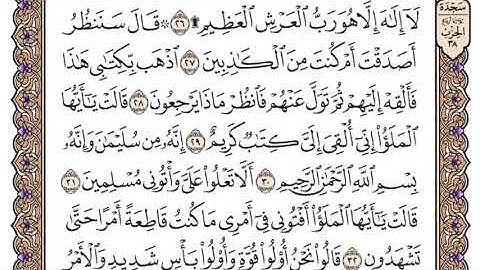 سَجْدَة
الحِزْب
٣٨
لَآ إِلَٰهَ إِلَّا هُوَ رَبُّ ٱلْعَرْشِ ٱلْعَظِيمِ ۩ ٢٦ ۞ قَالَ سَنَنظُرُ
أَصَدَقْتَ أَمْ كُنتَ مِنَ ٱلْكَٰذِبِينَ ٢٧ ٱذْهَب بِّكِتَٰبِى هَٰذَا
فَأَلْقِهْ إِلَيْهِمْ ثُمَّ تَوَلَّ عَنْهُمْ فَٱنظُرْ مَاذَا يَرْجِعُونَ ٢٨ قَالَتْ يَٰٓأَيُّهَا
ٱلْمَلَؤُا۟ إِنِّىٓ أُلْقِىَ إِلَىَّ كِتَٰبٌ كَرِيمٌ ٢٩ إِنَّهُۥ مِن سُلَيْمَٰنَ وَإِنَّهُۥ
بِسْمِ ٱللَّهِ ٱلرَّحْمَٰنِ ٱلرَّحِيمِ ٣٠ أَلَّا تَعْلُوا۟ عَلَىَّ وَأْتُونِى مُسْلِمِينَ ٣١
قَالَتْ يَٰٓأَيُّهَا ٱلْمَلَؤُا۟ أَفْتُونِى فِىٓ أَمْرِى مَا كُنتُ قَاطِعَةً أَمْرًا حَتَّىٰ
تَشْهَدُونِ ٣٢ قَالُوا۟ نَحْنُ أُو۟لُوا۟ قُوَّةٍ وَأُو۟لُوا۟ بَأْسٍ شَدِيدٍ وَٱلْأَمْرُ